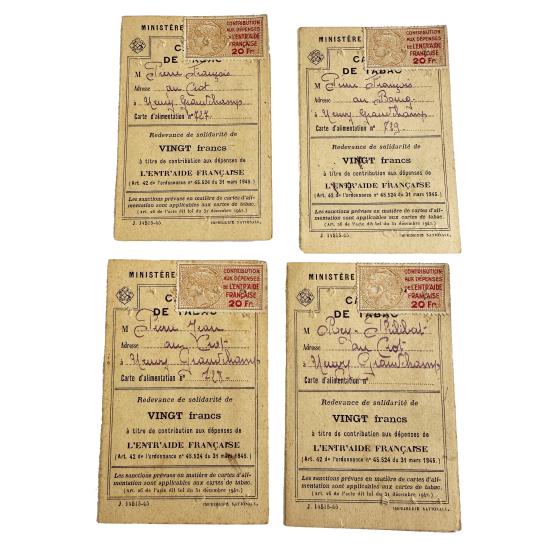 MINISTÈRE
CONTRIBUTION
AUX DÉPENSES
DE L'ENTR'AIDE
FRANÇAISE
20 Fr.
DE TABAC
M Pierre François
Adresse au Crot
à Neuvy Grandchamp
Carte d'alimentation n° 727
Redevance de solidarité de
VINGT francs
à titre de contribution aux dépenses de
L'ENTR'AIDE FRANÇAISE
(Art. 42 de l'ordonnance n° 45.524 du 31 mars 1945.)
Les sanctions prévues en matière de cartes d'ali-
mentation sont applicables aux cartes de tabac.
(Art. 26 de l'acte dit loi du 31 décembre 1941.)
J. 14515-45. IMPRIMERIE NATIONALE.
MINISTÈRE
CONTRIBUTION
AUX DÉPENSES
DE L'ENTR'AIDE
FRANÇAISE
20 Fr.
DE TABAC
M Pierre François
Adresse au Bourg
à Neuvy Grandchamp
Carte d'alimentation n° 729
Redevance de solidarité de
VINGT francs
à titre de contribution aux dépenses de
L'ENTR'AIDE FRANÇAISE
(Art. 42 de l'ordonnance n° 45.524 du 31 mars 1945.)
Les sanctions prévues en matière de cartes d'ali-
mentation sont applicables aux cartes de tabac.
(Art. 26 de l'acte dit loi du 31 décembre 1941.)
J. 14515-45. IMPRIMERIE NATIONALE.
MINISTÈRE
CONTRIBUTION
AUX DÉPENSES
DE L'ENTR'AIDE
FRANÇAISE
20 Fr.
DE TABAC
M Pierre Jean
Adresse au Crot
à Neuvy Grandchamp
Carte d'alimentation n° 728
Redevance de solidarité de
VINGT francs
à titre de contribution aux dépenses de
L'ENTR'AIDE FRANÇAISE
(Art. 42 de l'ordonnance n° 45.524 du 31 mars 1945.)
Les sanctions prévues en matière de cartes d'ali-
mentation sont applicables aux cartes de tabac.
(Art. 26 de l'acte dit loi du 31 décembre 1941.)
J. 14515-45. IMPRIMERIE NATIONALE.
MINISTÈRE
CONTRIBUTION
AUX DÉPENSES
DE L'ENTR'AIDE
FRANÇAISE
20 Fr.
DE TABAC
M Rey Philibert
Adresse au Crot
à Neuvy Grandchamp
Carte d'alimentation n°
Redevance de solidarité de
VINGT francs
à titre de contribution aux dépenses de
L'ENTR'AIDE FRANÇAISE
(Art. 42 de l'ordonnance n° 45.524 du 31 mars 1945.)
Les sanctions prévues en matière de cartes d'ali-
mentation sont applicables aux cartes de tabac.
(Art. 26 de l'acte dit loi du 31 décembre 1941.)
J. 14515-45. IMPRIMERIE NATIONALE.